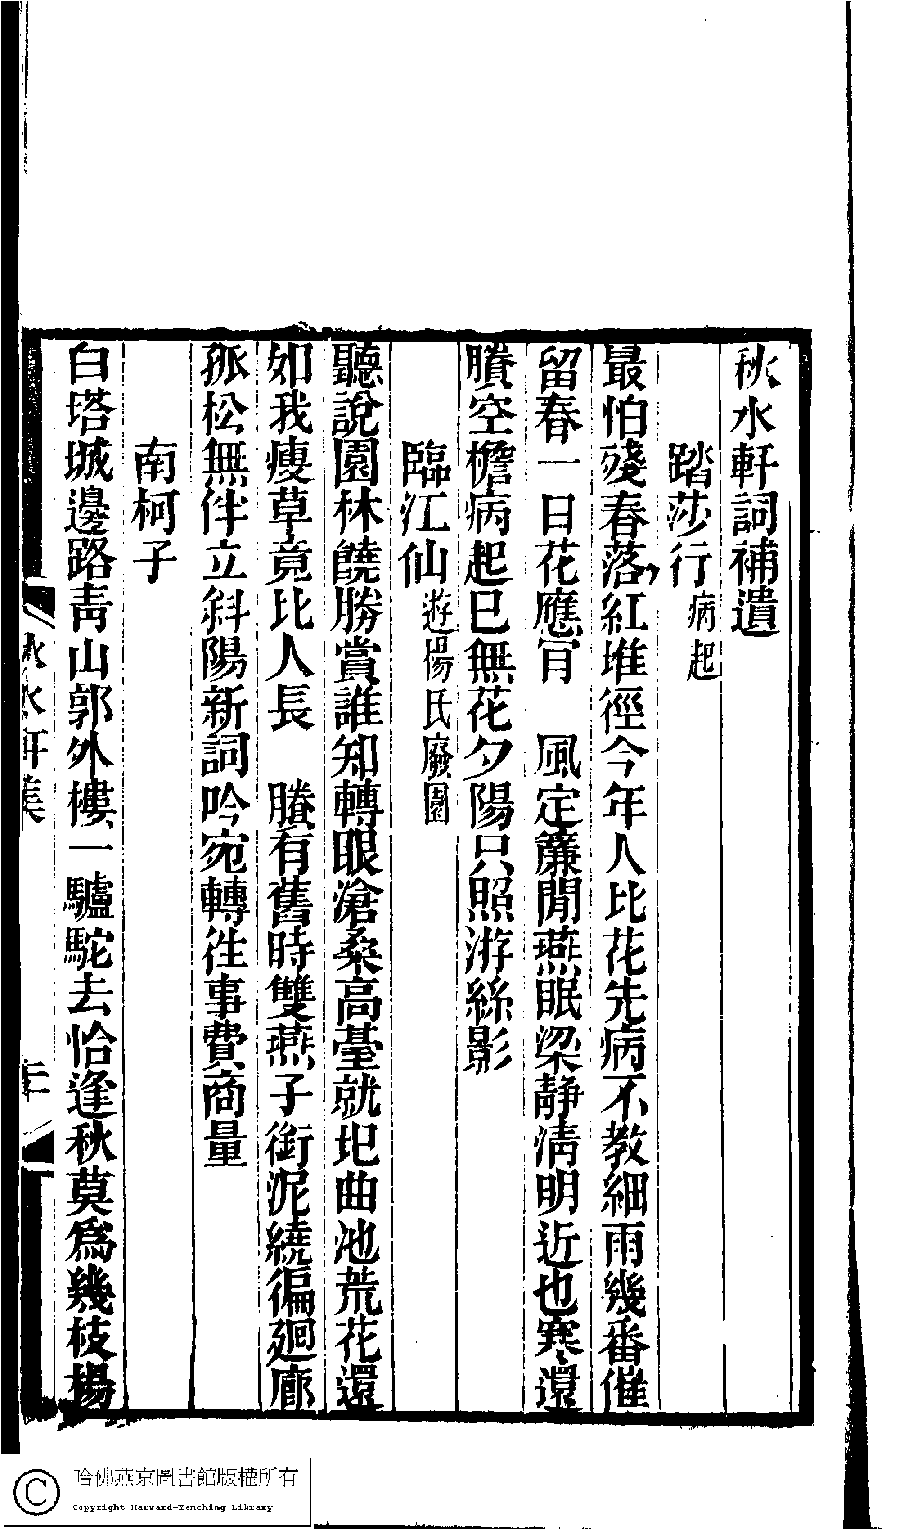 秋水軒詞補遺
踏莎行病起
最怕殘春落紅堆徑今年人比花先病不教細雨幾番催
留春一日花應肯　風定簾閒燕眠梁靜淸明近也寒還
賸空檐病起已無花夕陽只照游絲影
臨江仙遊楊氏廢園
聽說園林饒勝賞誰知轉眼滄桑高臺就圯曲池荒花還
如我瘦草竟比人長　賸有舊時雙燕子銜泥繞徧廻廊
孤松無伴立斜陽新詞吟宛轉往事費商量
南柯子
白塔城邊路靑山郭外樓一驢駝去恰逢秋莫爲幾枝楊
秋水軒集
哈佛燕京圖書館版權所有
Copyright Harvard-Yenching Library